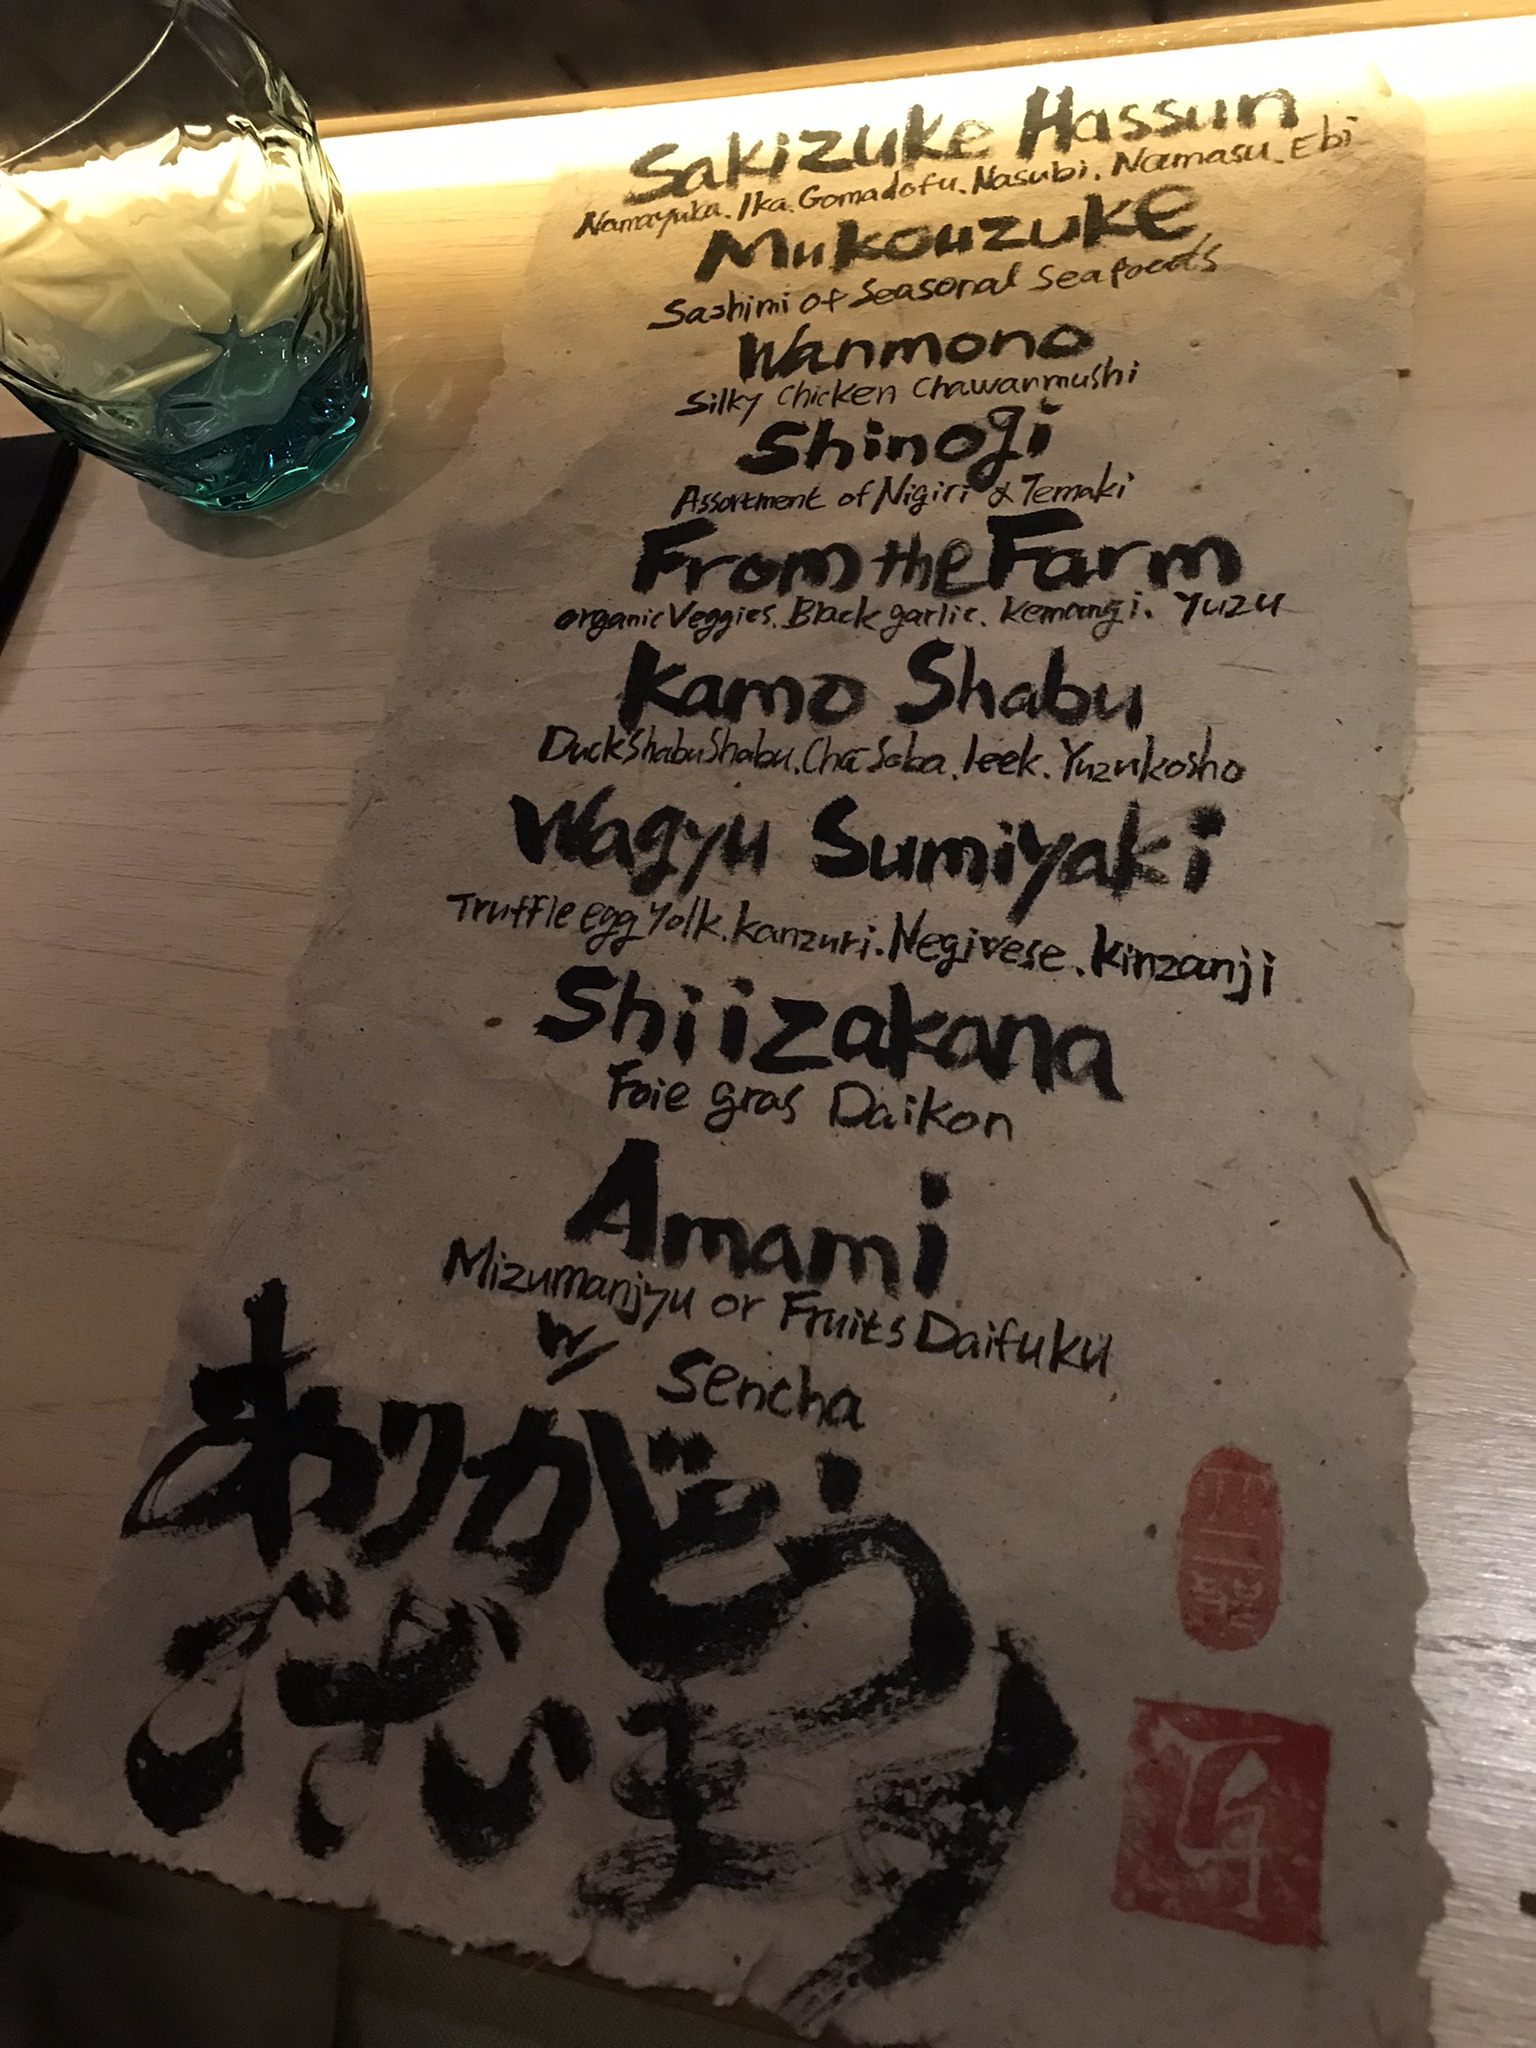 Sakizuke Hassun
Namayuka. Ika. Gomadofu. Nasubi. Namasu. Ebi
Mukouzuke
Sashimi of Seasonal Seafoods
Wanmono
Silky Chicken Chawanmushi
Shinogi
Assortment of Nigiri & Temaki
From the Farm
organic Veggies. Black garlic. Kemangi. Yuzu
Kamo Shabu
Duck Shabu Shabu. Cha-Soba. leek. Yuzukosho
Wagyu Sumiyaki
Truffle egg yolk. Kanzuri. Negivese. Kinzanji
Shiizakana
Foie gras Daikon
Amami
Mizumanjyu or Fruits Daifuku
w/ Sencha
ありがどう
ございます
匠